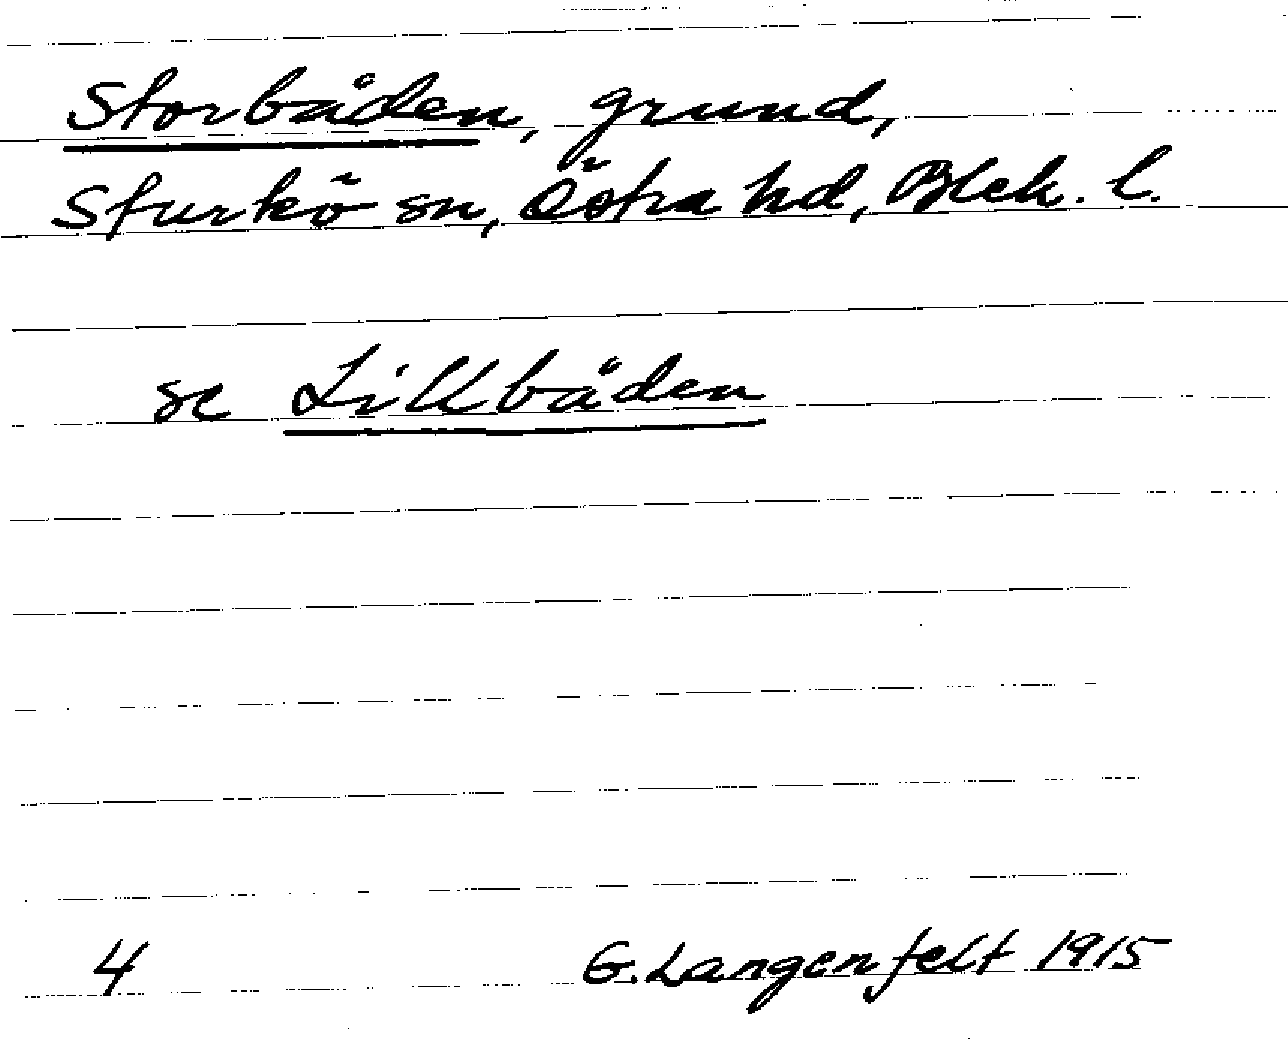 Storbåden, grund,
Sturkö sn, Östra hd, Blek. l.
se Lillbåden
4 G. Langenfelt 1915